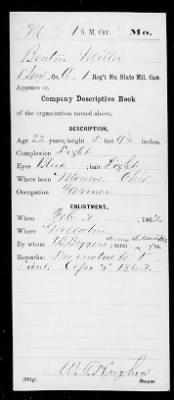 M | 1 S. M. Cav. | Mo.
Benton Miller
Co. A, 1 Reg't Mo. State Mil. Cav.
Appears on
Company Descriptive Book
of the organization named above.
DESCRIPTION.
Age 22 years; height 5 feet 9½ inches.
Complexion Light
Eyes Blue; hair Light
Where born Monroe Ohio
Occupation Farmer
ENLISTMENT.
When Feb 3, 1862
Where Gallatin
By whom Biggers; term yrs.
Remarks: Promoted to 1"
Lieut. 1863.
W. T. Hughes
Copyist.